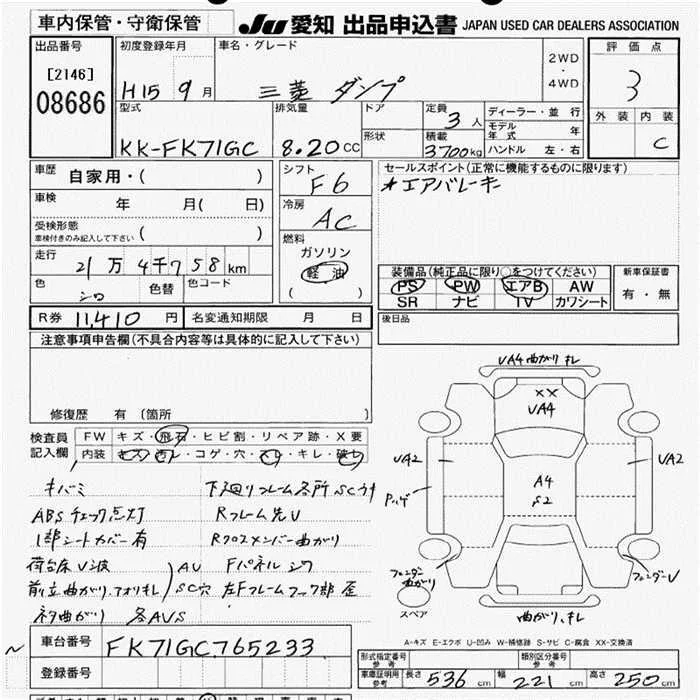 車内保管・守衛保管
JU 愛知 出品申込書 JAPAN USED CAR DEALERS ASSOCIATION
出品番号
[2146]
08686
初度登録年月
H15 9月
車名・グレード
三菱 ダンプ
2WD
・
4WD
評価点
3
外装 内装
C
型式
KK-FK71GC
排気量
8.20 CC
ドア
形状
定員
3人
積載
3700kg
ディーラー・並行
モデル年式 年
ハンドル 左・右
車歴 自家用・( )
車検 年 月( 日)
受検形態
車検付きのみ記入して下さい ( )
走行
21万4千758km
色
シロ
色替
色コード
シフト
F6
冷房
AC
燃料
ガソリン
軽油
( )
セールスポイント(正常に機能するものに限ります)
*エアバレーキ
装備品(純正品に限り○をつけてください)
PS PW エアB AW
SR ナビ TV カワシート
新車保証書
有・無
後日品
R券 11,410 円
名変通知期限 月 日
注意事項申告欄(不具合内容等は具体的に記入して下さい)
修復歴 有 (箇所 )
検査員記入欄
FW キズ・飛石・ヒビ割・リペア跡・X要
内装 キズ・汚レ・コゲ・穴・スレ・キレ・破レ
キバミ
ABSチェック点灯
1部シートカバー有
荷台床V波
AU
SC穴
各AVS
下廻リフレーム各所SC
Rフレーム先V
Rクロスメンバー曲がり
Fパネル シワ
左Fフレームフック部 歪
VA4曲がり キレ
XX
VA4
VA2
VA2
A4
S2
フェンダー曲がり
フェンダーV
スペア
曲がり、キレ
A-キズ E-エクボ U-凹み W-補修跡 S-サビ C-腐食 XX-交換済
車台番号
FK71GC765233
登録番号
形式指定番号
参考
類別区分番号
参考
車庫証明用
参考
長さ 536 cm
幅 221 cm
高さ 250 cm